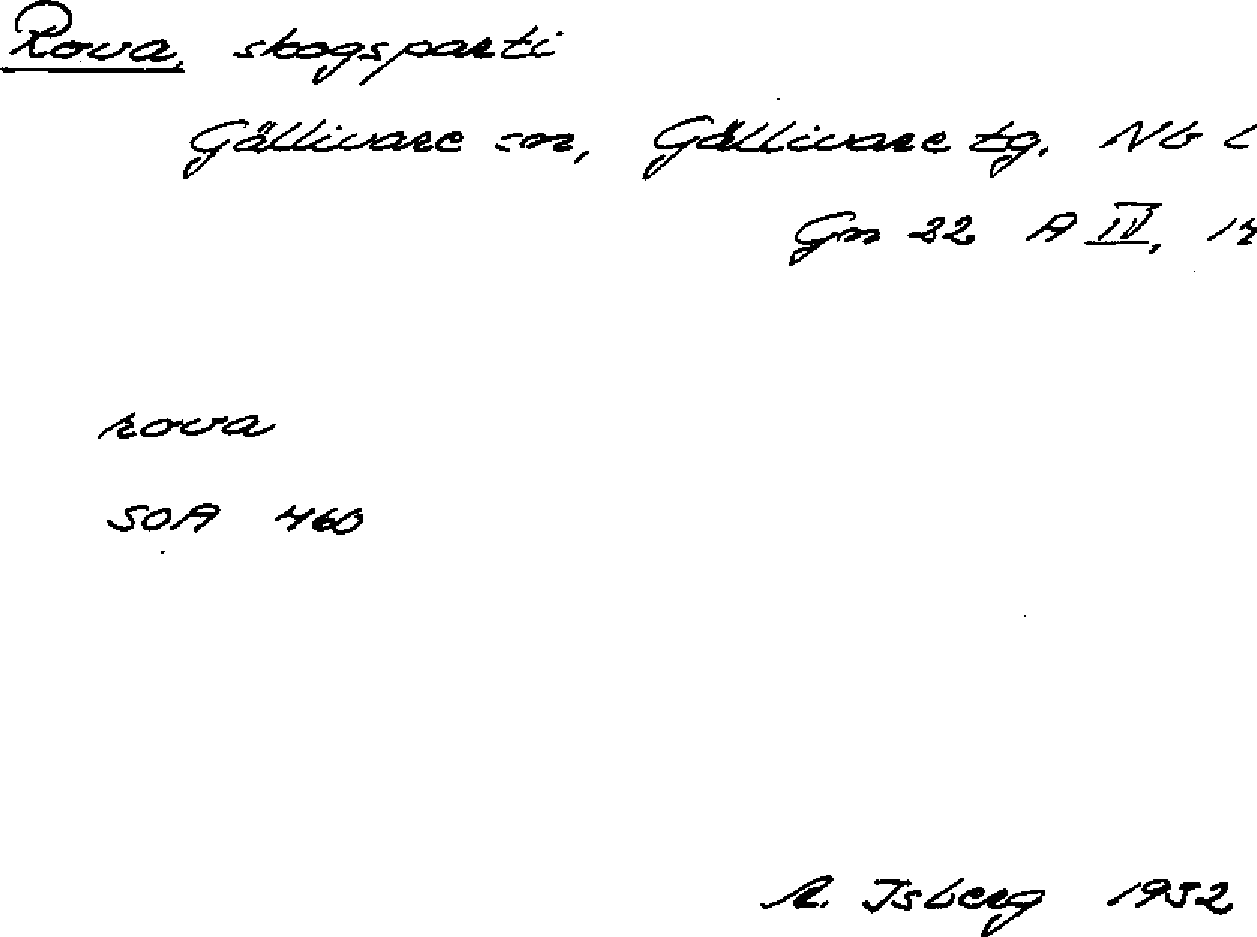 Rova, skogsparti
Gällivare sn, Gällivare tg. Nb l
Gn 22 A IV, 12
rova
SOA 460
R. Isberg 1952